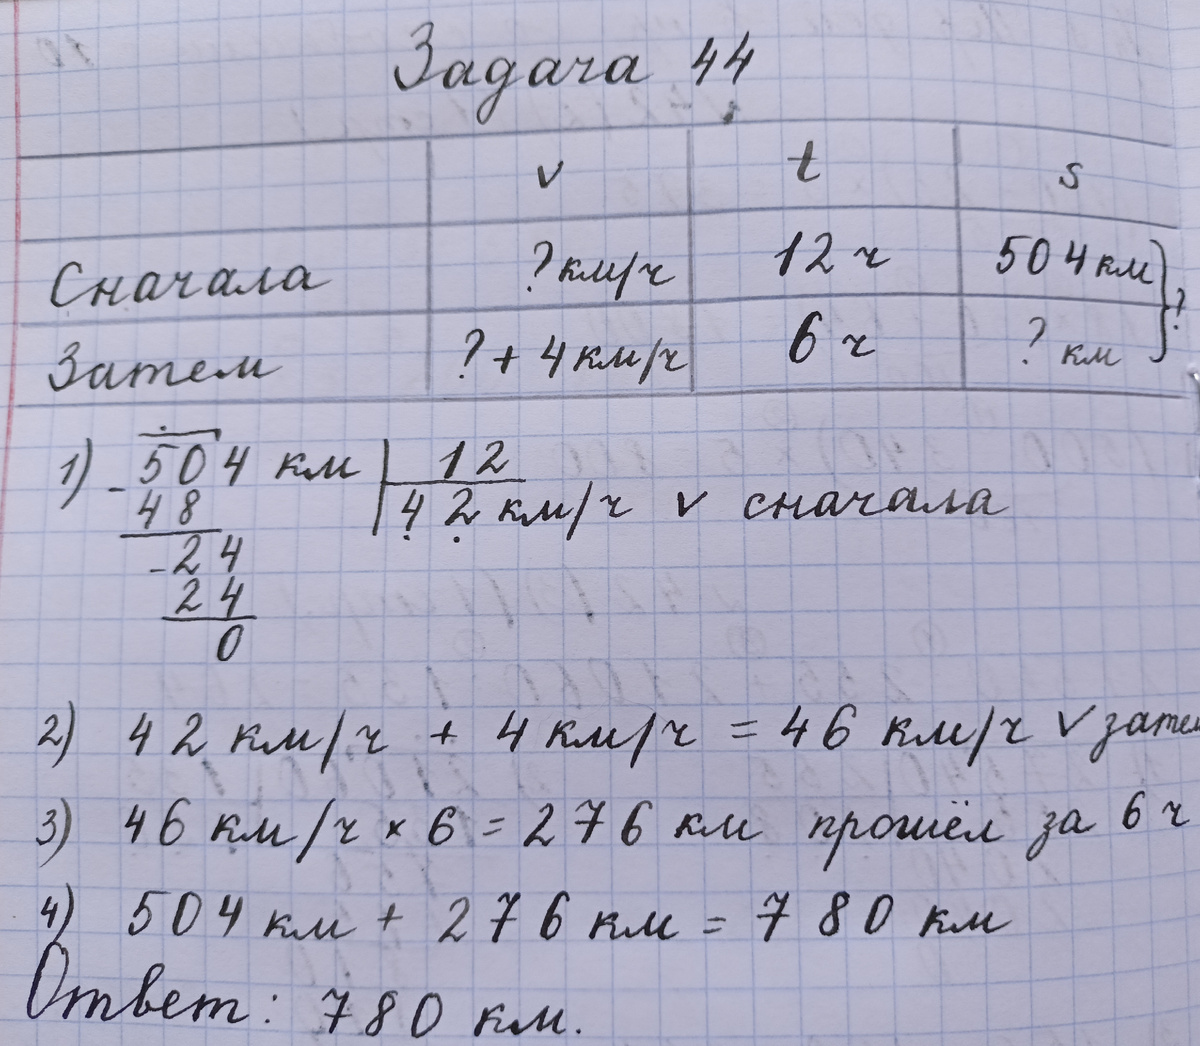 Задача 44
v t s
Сначала ? км/ч 12 ч 504 км
Затем ? + 4 км/ч 6 ч ? км } ?
1) 504 км | 12
- 48 42 км/ч v сначала
- 24
24
0
2) 42 км/ч + 4 км/ч = 46 км/ч v затем
3) 46 км/ч × 6 = 276 км прошёл за 6 ч
4) 504 км + 276 км = 780 км
Ответ: 780 км.